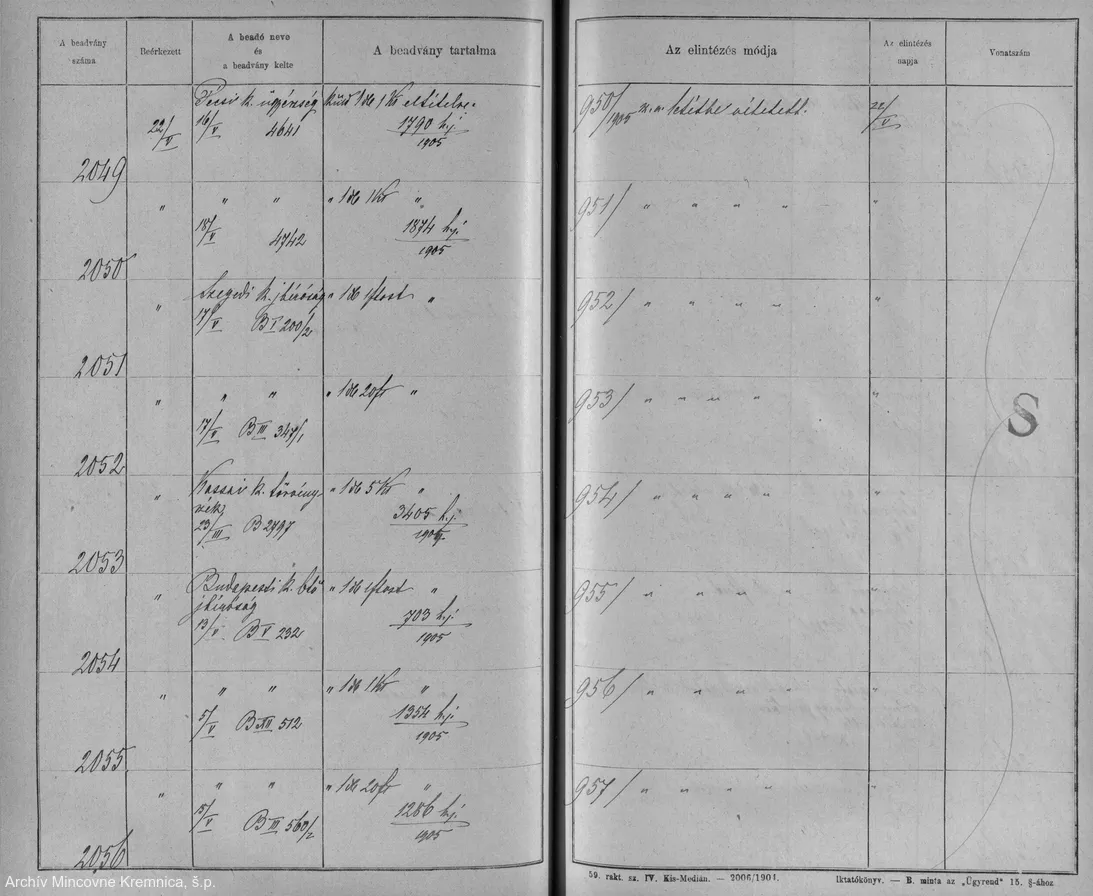 A beadvány száma
Beérkezett
A beadó neve
és
a beadvány kelte
A beadvány tartalma
Az elintézés módja
Az elintézés napja
Vonatszám
2049
22/V
Pécsi k. ügyészség
16/V 4641
küld 1 db 1 Kr
1790 h.j.
1905
950/1905
22/V
2050
„ „ „
18/V 4742
„ 1 db 1 Kr „
1874 h.j.
1905
951/ „ „ „ „ „
2051
„
Szegedi k. jbíróság
17/V B I 200/2
„ 1 db „
952/ „ „ „ „ „
2052
„ „ „
17/V B III 347/1
„ 1 db 20 fr „
953/ „ „ „ „ „
2053
„
Kassai k. törvény
szék
23/III B 2797
„ 1 db 5 Kr „
3405 h.j.
1905
954/ „ „ „ „ „
2054
„
Budapesti k. btő
jbíróság
13/V B V 232
„ 1 db „
703 h.j.
1905
955/ „ „ „ „ „
2055
„ „ „
5/V B XII 512
„ 1 db 1 Kr „
1354 h.j.
1905
956/ „ „ „ „ „
2056
„ „ „
15/V B III 560/2
„ 1 db 20 fr „
1286 h.j.
1905
957/ „ „ „ „ „
S
59. rakt. sz. IV. Kis-Medián. — 2006/1904.
Iktatókönyv. — B. minta az „Ügyrend" 15. §-ához
Archív Mincovne Kremnica, š.p.